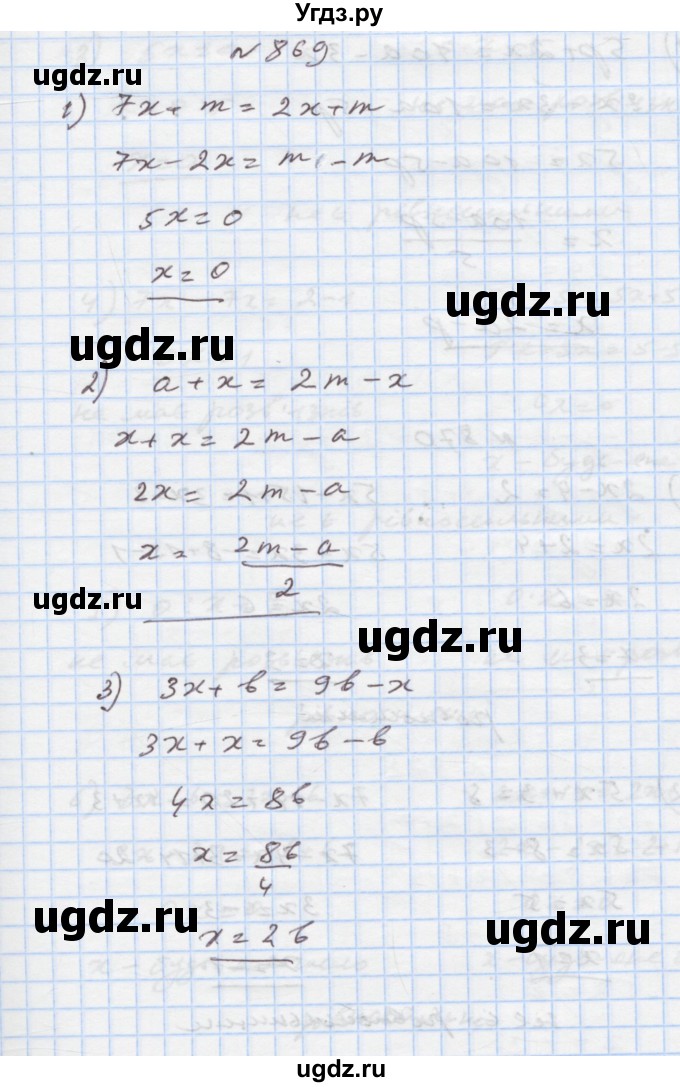 Угдз.ру
N 869
ugdz.ru
1) 7x + m = 2x + m
7x - 2x = m - m
5x = 0
x = 0
ugdz.ru
ugdz.ru
2) a + x = 2m - x
x + x = 2m - a
2x = 2m - a
x = (2m - a)/2
ugdz.ru
ugdz.ru
3) 3x + b = 9b - x
3x + x = 9b - b
4x = 8b
x = 8b/4
ugdz.ru
x = 2b
ugdz.ru
ugdz.ru